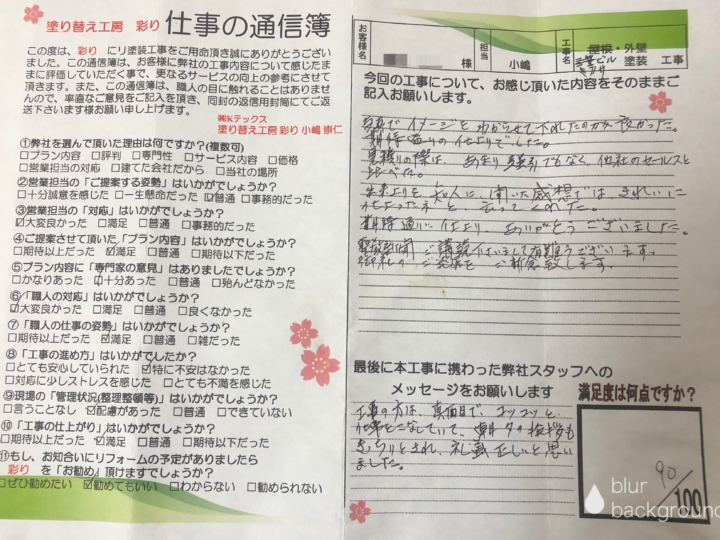 塗り替え工房 彩り 仕事の通信簿
この度は、彩り にリ塗装工事をご用命頂き誠にありがとうござい
ました。この通信簿は、お客様に弊社の工事内容について感じたま
まに評価していただく事で、更なるサービスの向上の参考にさせて
頂きます。また、この通信簿は、職人の目に触れることはありませ
んので、率直なご意見をご記入を頂き、同封の返信用封筒にてご返
送下さいます様お願い申し上げます。
㈱Kテックス
塗り替え工房 彩り 小嶋 崇仁
①弊社を選んで頂いた理由は何ですか?(複数可)
□プラン内容 □評判 □専門性 □サービス内容 □価格
□営業担当の対応 □建てた会社だから □当社の場所
②営業担当の「ご提案する姿勢」はいかがでしょうか?
□十分誠意を感じた □一生懸命だった ☑普通 □事務的だった
③営業担当の「対応」はいかがでしょうか?
☑大変良かった □満足 □普通 □事務的だった
④ご提案させて頂いた「プラン内容」はいかがでしょうか?
□期待以上だった ☑満足 □普通 □期待以下だった
⑤プラン内容に「専門家の意見」はありましたでしょうか?
□かなりあった ☑十分あった □普通 □殆んどなかった
⑥「職人の対応」はいかがでしょうか?
☑大変良かった □満足 □普通 □良くなかった
⑦「職人の仕事の姿勢」はいかがでしょうか?
□期待以上だった ☑満足 □普通 □雑だった
⑧「工事の進め方」はいかがでしたか?
□とても安心していられた ☑特に不安はなかった
□対応に少しストレスを感じた □とても不満を感じた
⑨現場の「管理状況(整理整頓等)」はいかがでしょうか?
□言うことなし ☑配慮があった □普通 □できていない
⑩「工事の仕上がり」はいかがでしょうか?
□期待以上だった ☑満足 □普通 □期待以下だった
⑪もし、お知合いにリフォームの予定がありましたら
彩り を「お勧め」頂けますでしょうか?
□ぜひ勧めたい ☑勧めてもいい □わからない □勧められない
お客様名 様 担当 小嶋 工事名 屋根・外壁 塗装 工事
今回の工事について、お感じ頂いた内容をそのままご
記入お願いします。
写真でイメージとわからせて下れたのが良かった。
期待通りの仕上りでした。
見積りの際は、あまり強引でもなく、他社のセールスと
比べた。
出来上りを知人に聞いた感想では、きれいに
仕上ったネと言ってくれた。
期待通りに仕上り、ありがとうございました。
ご購読下さいまして有難うございます。
御社のご発展をご祈念致します。
最後に本工事に携わった弊社スタッフへの
メッセージをお願いします
工事の方は、真面目で、コツコツと
仕事をこなしていて、朝夕の挨拶も
きっちりとされ、礼儀正しいと思い
ました。
満足度は何点ですか?
90
/100
blur
background